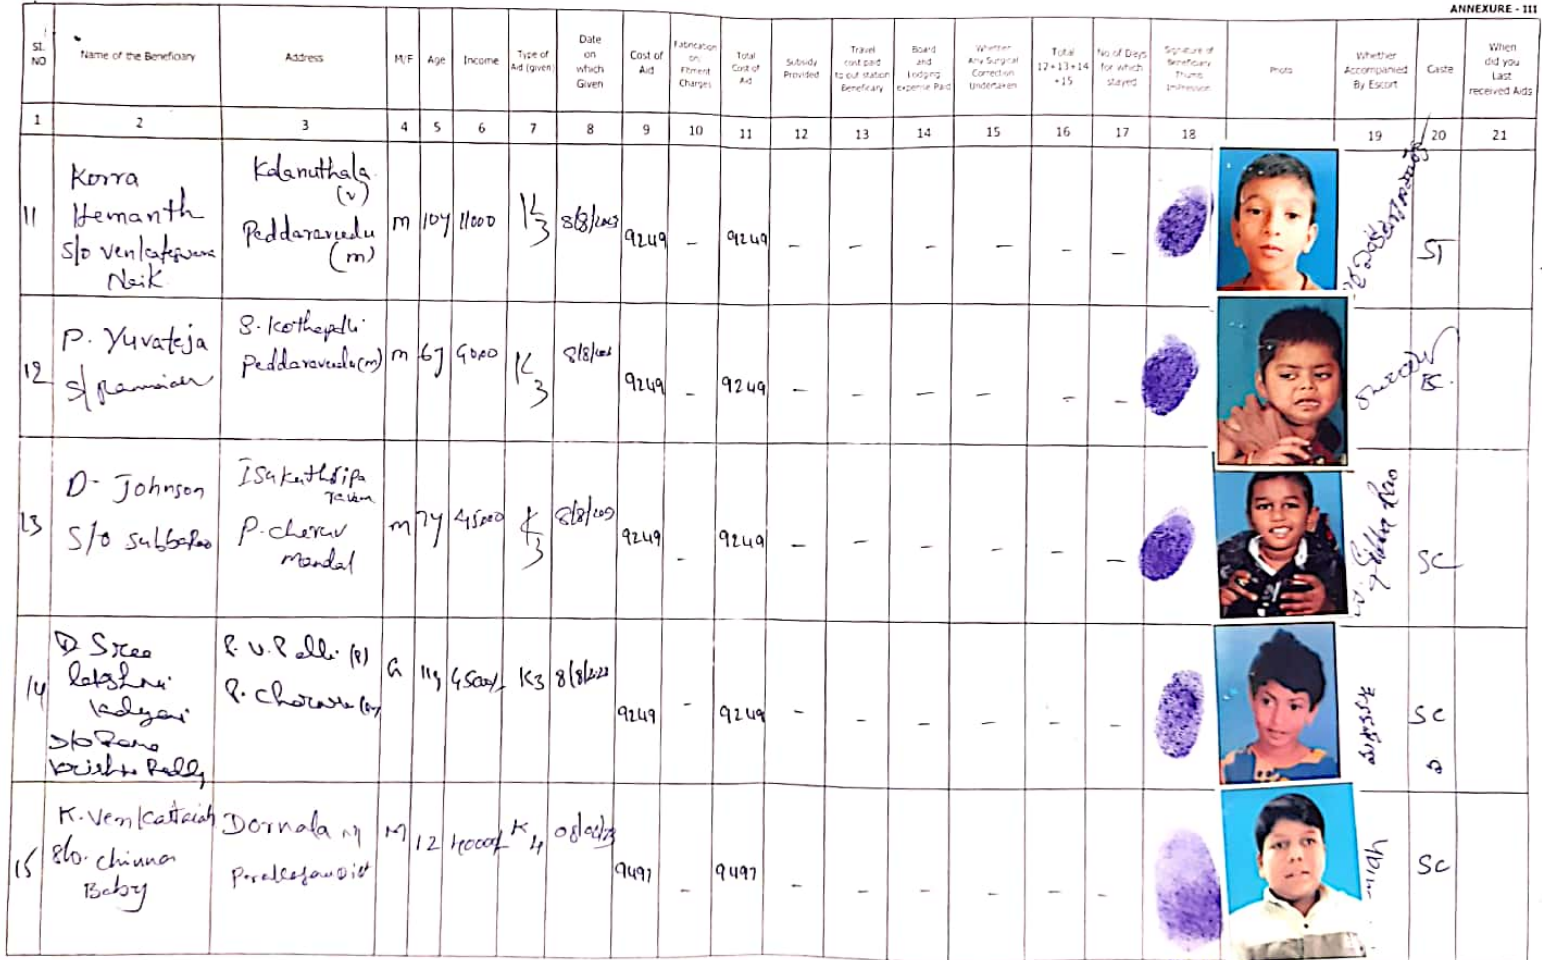 ANNEXURE - III
SI. NO
Name of the Beneficiary
Address
M/F
Age
Income
Type of Aid (given)
Date on which Given
Cost of Aid
Fabrication Fitment Charges
Total Cost of Aid
Subsidy Provided
Travel cost paid to out station Beneficiary
Board and Lodging expense Paid
Whether Any Surgical Correction Undertaken
Total 12+13+14 +15
No of Days for which stayed
Signature of Beneficiary Thumb Impression
Photo
Whether Accompanied By Escort
Caste
When did you Last received Aids
1 2 3 4 5 6 7 8 9 10 11 12 13 14 15 16 17 18 19 20 21
11
Korra
Hemanth
S/o Venkateswara
Naik
Kalanuthala
(v)
Peddaraveedu
(m)
m
10y
11000
K3
8/8/2023
9249 - 9249 - - - - - -
ST
12
P. Yuvateja
S/o Ramaiah
S. Kothapalli
Peddaraveedu (m)
m
6y
9000
K3
9249 - 9249 - - - - - -
13
D- Johnson
S/o SubbaRao
P. cheruv
Mandal
m
7y
45000
K3
9249 - 9249 - - - - - -
SC
14
D Sree
Lakshmi
Kalyani
D/o Rama
Krishna Reddy
G
11y
K3
8/8/2023
9249 - 9249 - - - - - -
SC
15
K. Venkataiah
S/o. chinna
Baby
Dornala
M
12
K4
9497 - 9497 - - - - - -
SC